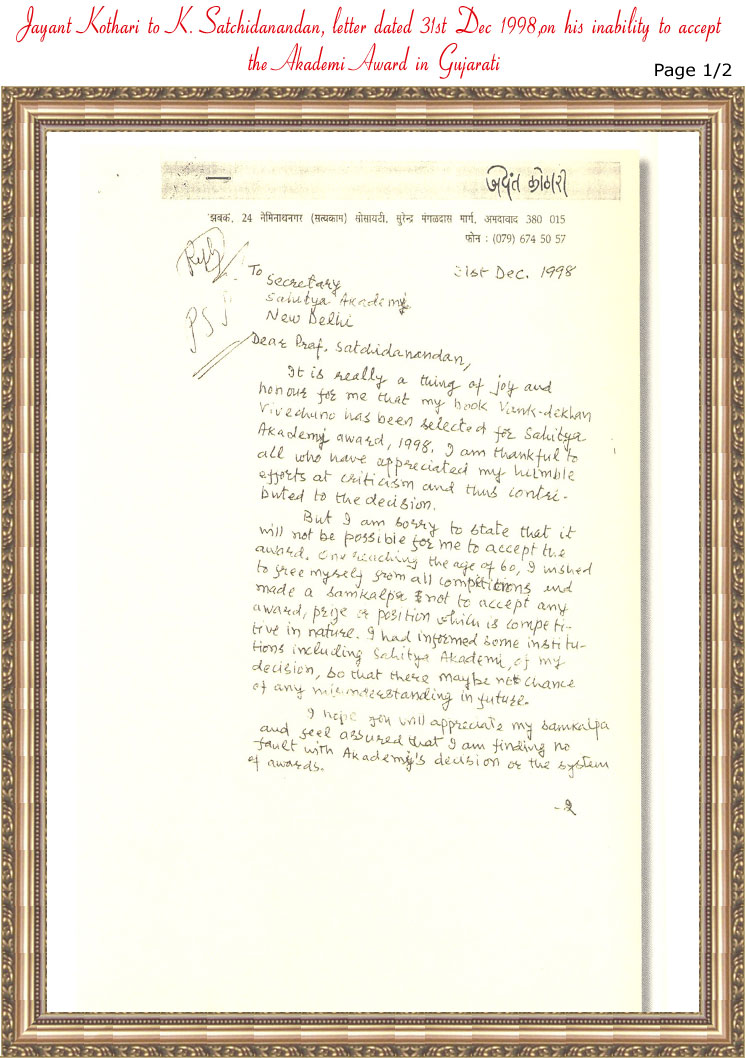 Jayant Kothari to K. Satchidanandan, letter dated 31st Dec 1998,on his inability to accept
the Akademi Award in Gujarati
Page 1/2
जयंत कोठारी
झबक, 24 नेमिनाथनगर (सत्यकाम) सोसायटी, सुरेन्द्र मंगळदास मार्ग, अमदावाद 380 015
फोन : (079) 674 50 57
31st Dec. 1998
To
Secretary
Sahitya Akademy
New Delhi
Dear Prof. Satchidanandan,
It is really a thing of joy and
honour for me that my book Vank-dekhan
Vivechano has been selected for Sahitya
Akademy award, 1998. I am thankful to
all who have appreciated my humble
efforts at criticism and thus contri-
buted to the decision.
But I am sorry to state that it
will not be possible for me to accept the
award. One reaching the age of 60, I wished
to free myself from all competitions and
made a samkalpa not to accept any
award, prize or position which is competi-
tive in nature. I had informed some institu-
tions including Sahitya Akademi, of my
decision, so that there maybe not chance
of any misunderstanding in future.
I hope you will appreciate my samkalpa
and feel assured that I am finding no
fault with Akademy's decision or the system
of awards.
-2